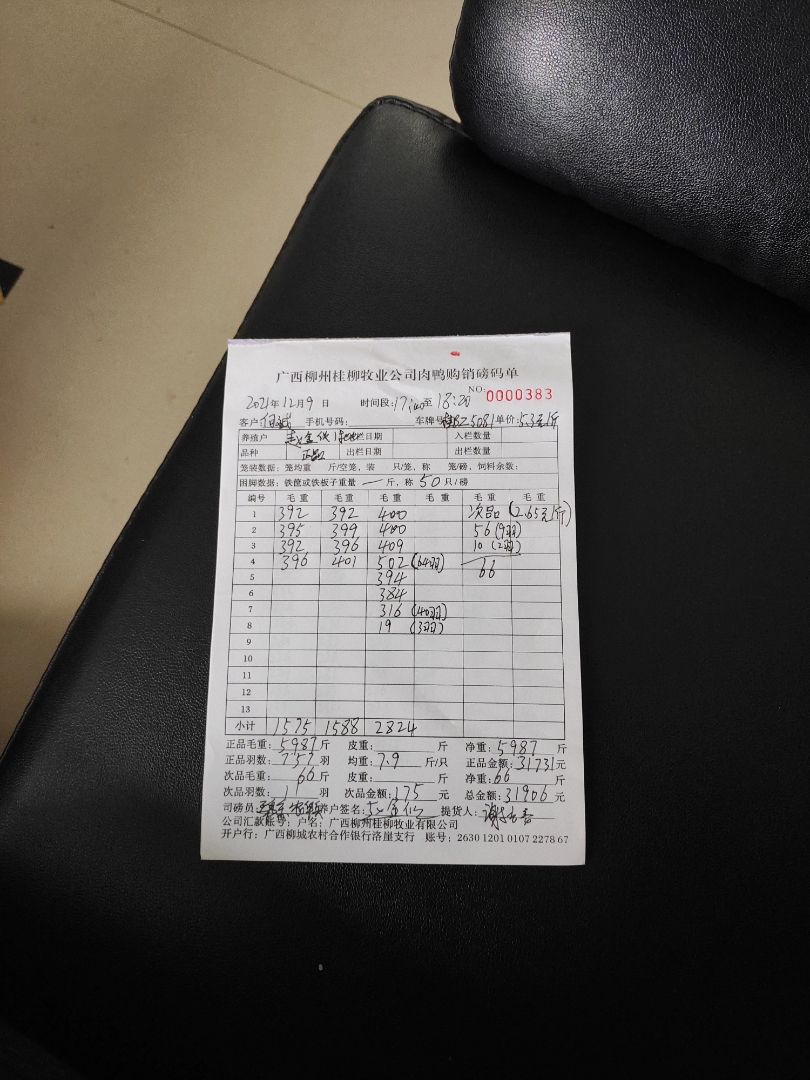 广西柳州桂柳牧业公司肉鸭购销磅码单
NO: 0000383
2021年12月9日 时间段:17:00至18:20
客户: 手机号码: 车牌号 Z5081 单价:5.3元/斤
养殖户 赵金 栏日期 入栏数量
品种 正品 出栏日期 出栏数量
笼装数据: 笼均重 斤/空笼, 装 只/笼, 称 笼/磅, 饲料余数:
困脚数据: 铁筐或铁板子重量 一 斤, 称 50 只/磅
编号 毛重 毛重 毛重 毛重 毛重 毛重
1 392 392 400 次品 (2.65元/斤)
2 395 399 400 56 (9羽)
3 392 396 409 10 (2羽)
4 396 401 502 (64羽) 66
5 394
6 384
7 316 (40羽)
8 19 (3羽)
9
10
11
12
13
小计 1575 1588 2824
正品毛重: 5987 斤 皮重: 斤 净重: 5987 斤
正品羽数: 757 羽 均重: 7.9 斤/只 正品金额: 31731元
次品毛重: 66 斤 皮重: 斤 净重: 66 斤
次品羽数: 11 羽 次品金额: 175 元 总金额: 31906 元
司磅员: 养户签名: 提货人:
公司汇款账号: 户名: 广西柳州桂柳牧业有限公司
开户行: 广西柳城农村合作银行洛崖支行 账号: 2630 1201 0107 2278 67